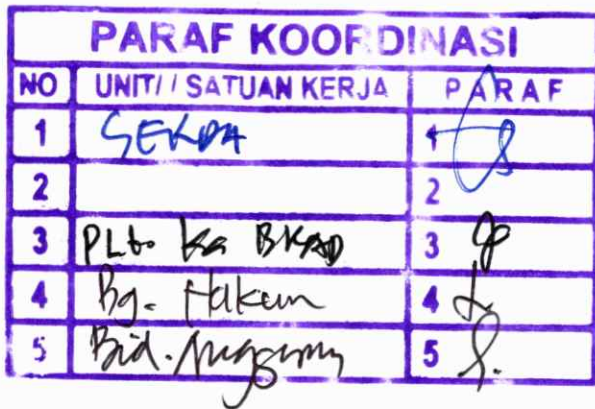 PARAF KOORDINASI
NO UNIT// SATUAN KERJA PARAF
1 SEKDA 1
2 2
3 PLt. Ka BKAD 3
4 Bg. Hukum 4
5 Bid. Anggaran 5